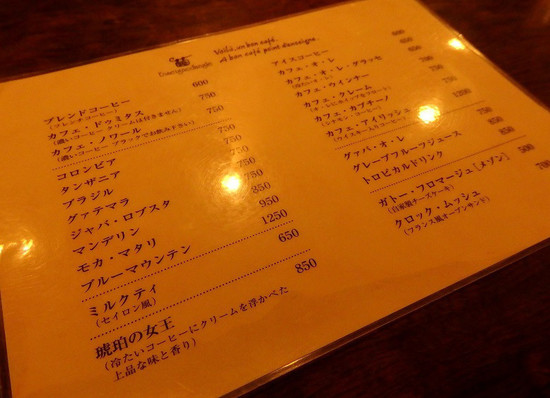 Voilà, un bon café.
et bon café point d'enseigne.
ブレンドコーヒー 600
(フレンチコーヒー)
カフェ・ドゥミタス 750
(濃いコーヒー クリームは付きません)
カフェ・ノワール 750
(濃いコーヒー ブラックでお飲み下さい)
コロンビア 750
タンザニア 750
ブラジル 750
グァテマラ 750
ジャバ・ロブスタ 750
マンデリン 850
モカ・マタリ 950
ブルーマウンテン 1250
ミルクティ 650
(セイロン風)
琥珀の女王 850
(冷たいコーヒーにクリームを浮かべた
上品な味と香り)
アイスコーヒー
カフェ・オ・レ
カフェ・オ・レ・グラッセ
カフェ・ウインナー
カフェ・クレーム
カフェ・カプチーノ
(シナモン・コーヒー)
カフェ・アイリッシュ
(ウイスキー入りコーヒー)
グァバ・オ・レ
グレープフルーツジュース
トロピカルドリンク
ガトー・フロマージュ[メゾン]
(自家製チーズケーキ)
クロック・ムッシュ
(フランス風オープンサンド)